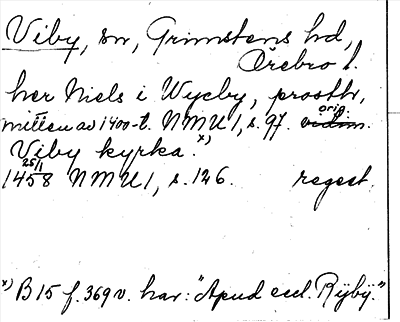 Viby, sn, Grimstens hd,
Örebro l.
her Niels i Wycby, prosthr,
mitten av 1400-t. NMU 1, s. 97. orig.
Viby kyrka. x)
25/1
1458 NMU 1, s. 126. regest.
x) B 15 f. 369 v. har: "Apud eccl. Rÿbÿ."